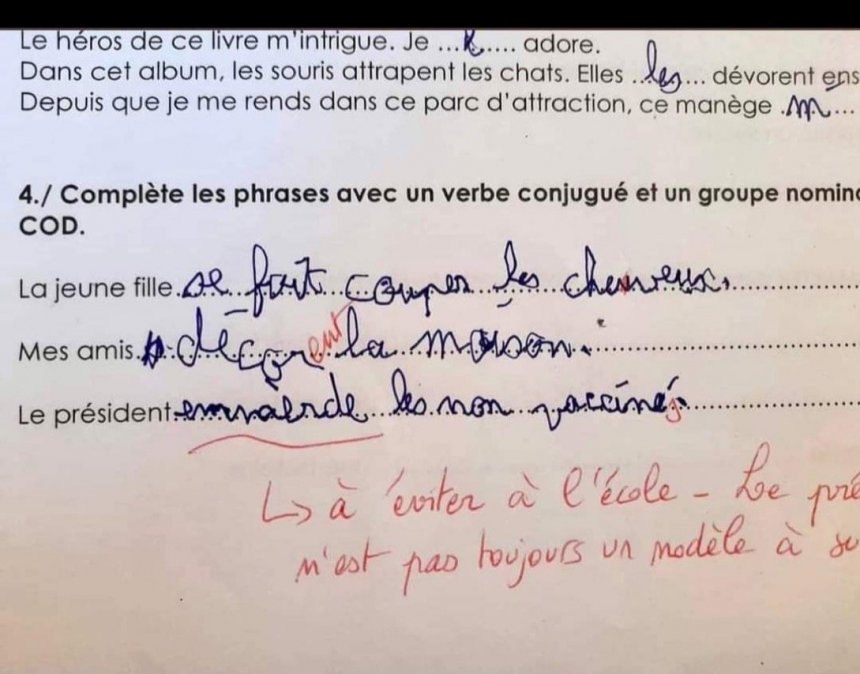 Le héros de ce livre m'intrigue. Je ...l'.... adore.
Dans cet album, les souris attrapent les chats. Elles ..les... dévorent ens
Depuis que je me rends dans ce parc d'attraction, ce manège .m'...
4./ Complète les phrases avec un verbe conjugué et un groupe nomina
COD.
La jeune fille se fait couper les cheveux.
Mes amis décorent la maison.
Le président emmerde les non vaccinés.
↳ à éviter à l'école - Le pré
n'est pas toujours un modèle à su